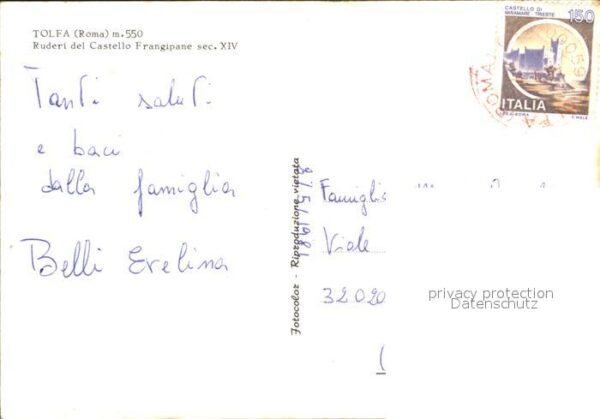 TOLFA (Roma) m. 550
Ruderi del Castello Frangipane sec. XIV
Tanti saluti
e baci
dalla famiglia
Belli Evelina
Fotocolor - Riproduzione vietata
8/5/1981
CASTELLO DI
MIRAMARE - TRIESTE
150
ITALIA
00059
Famiglia
Viale
32020
privacy protection
Datenschutz